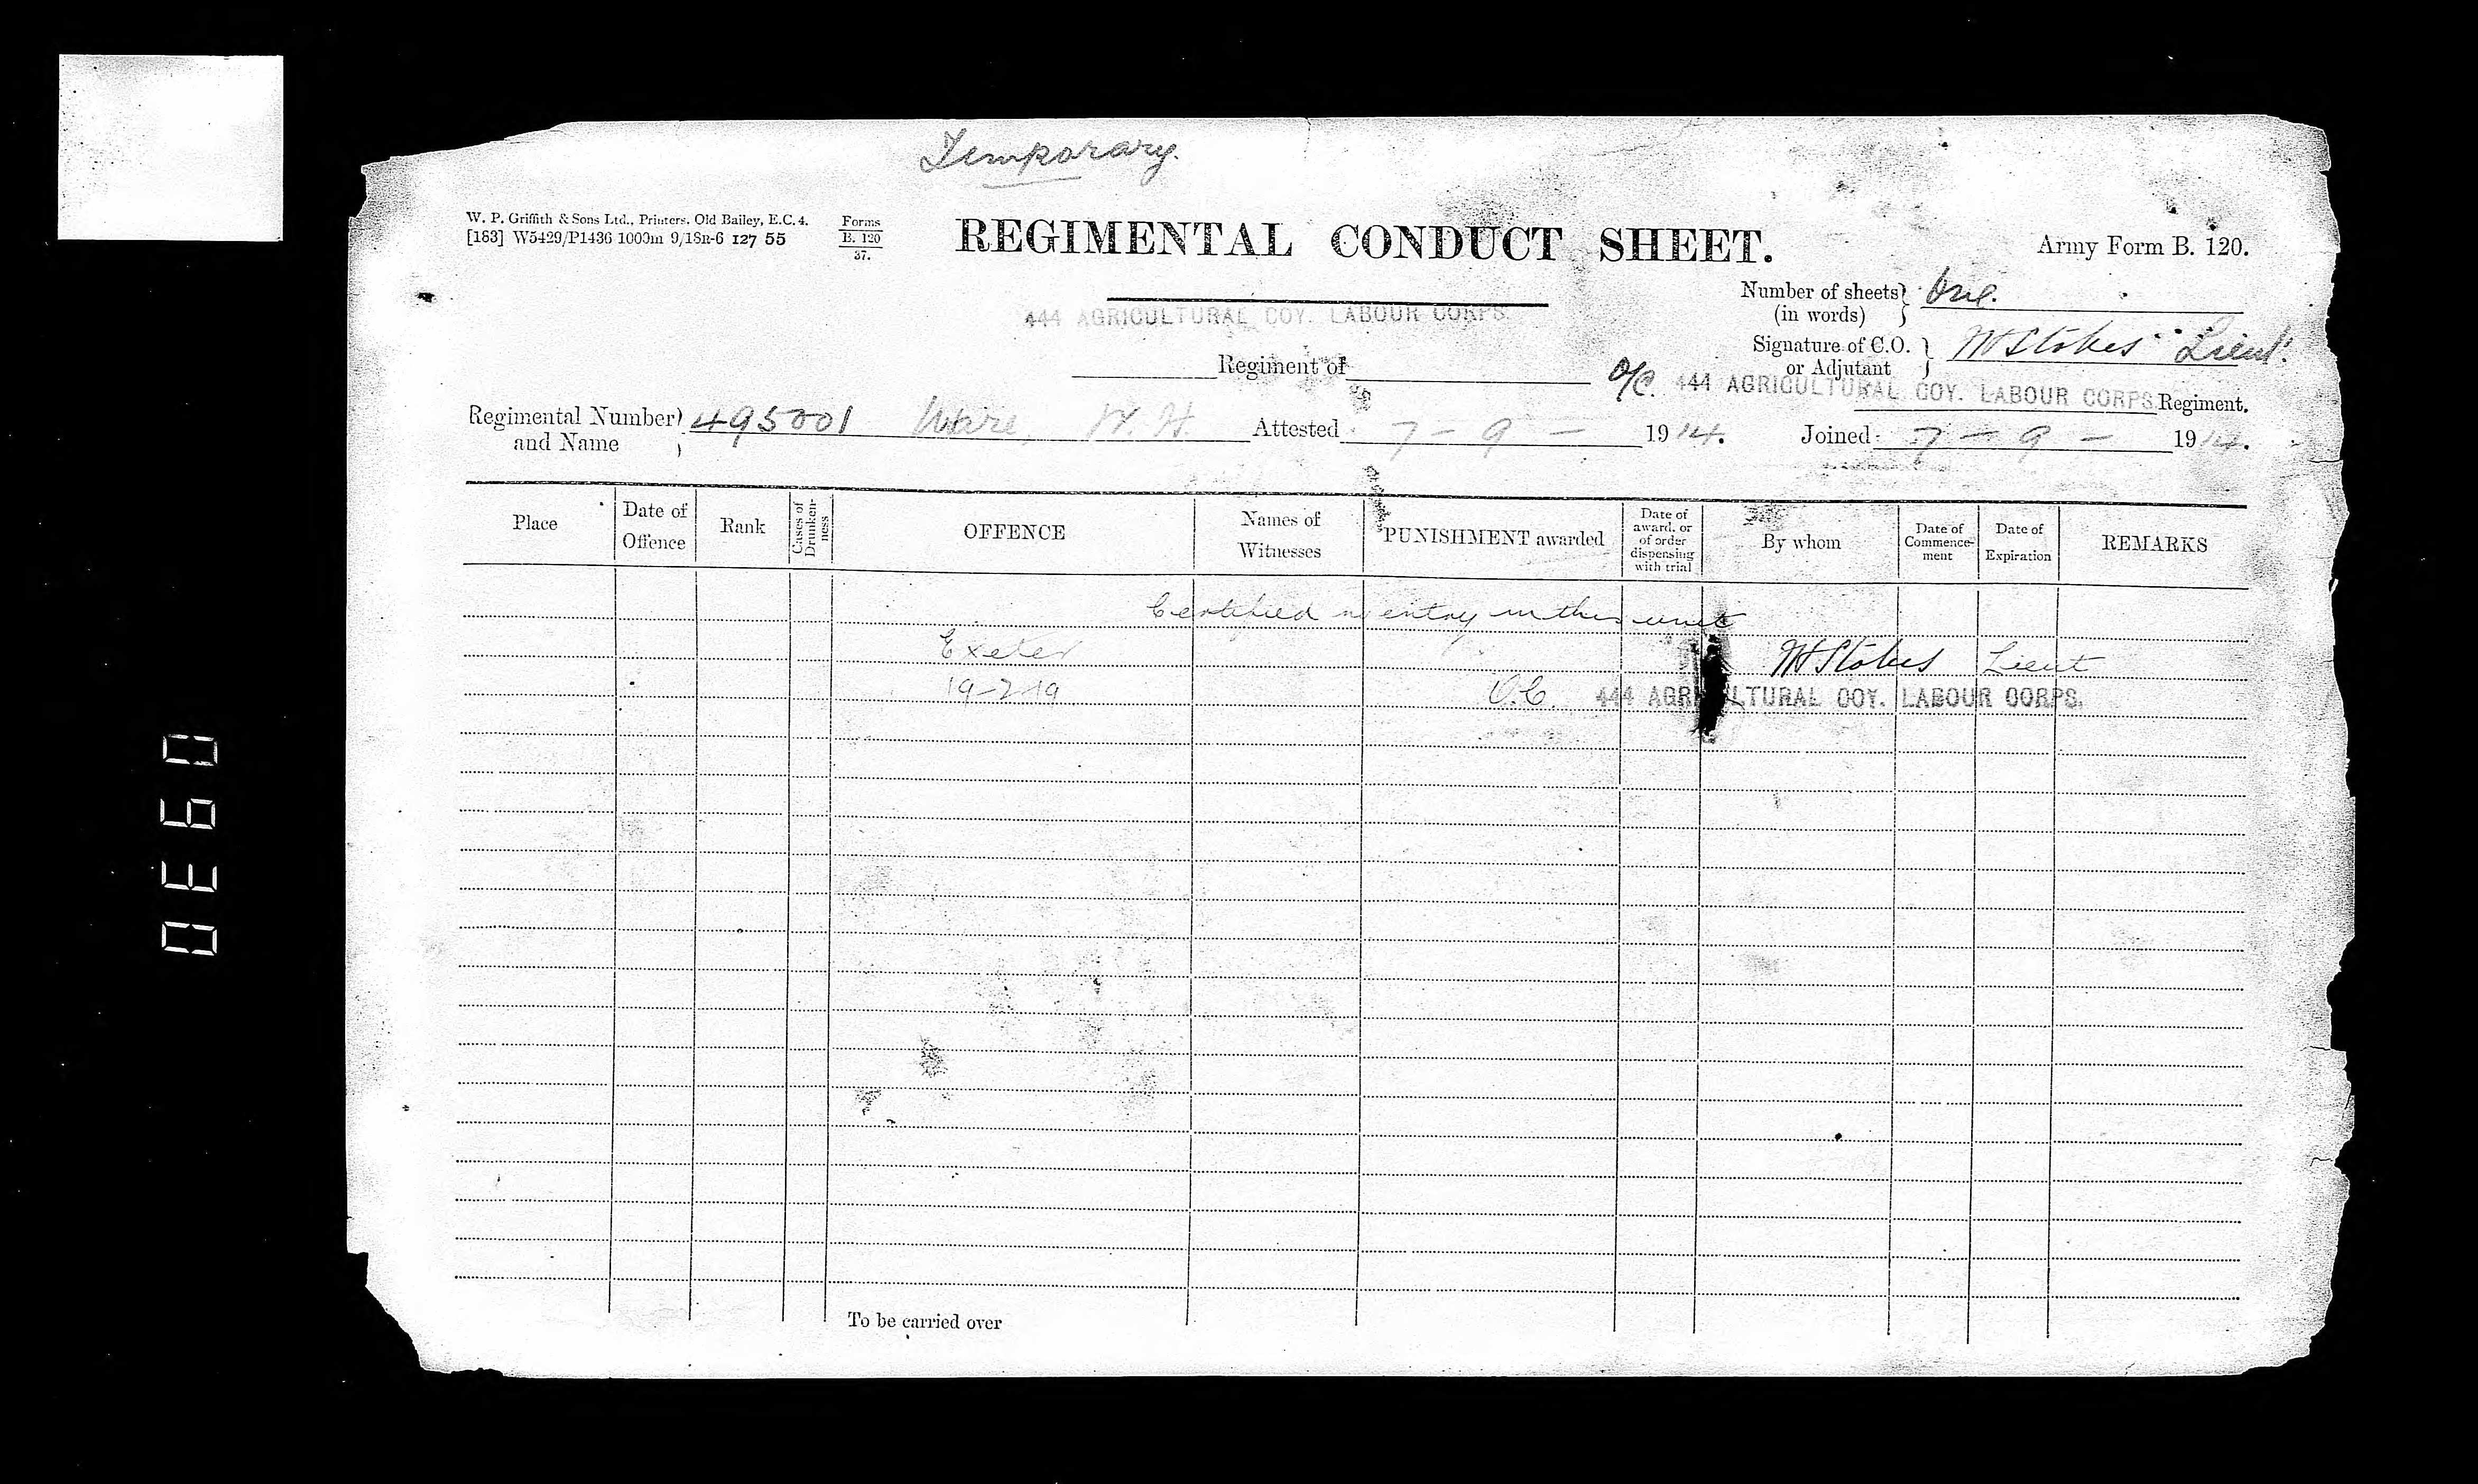 Temporary.
W. P. Griffith & Sons Ltd., Printers, Old Bailey, E.C. 4.
[183] W5429/P1436 1000m 9/18R-6 127 55
Forms
B. 120
37.
REGIMENTAL CONDUCT SHEET.
Army Form B. 120.
Number of sheets (in words) } One.
444 AGRICULTURAL COY. LABOUR CORPS.
Signature of C.O. or Adjutant } Stokes Lieut.
Regiment of
O/C. 444 AGRICULTURAL COY. LABOUR CORPS. Regiment.
Regimental Number and Name } 495001 Ware, W. H. Attested 7 - 9 - 1914. Joined 7 - 9 - 1914.
Place
Date of Offence
Rank
Cases of Drunken-ness
OFFENCE
Names of Witnesses
PUNISHMENT awarded
Date of award, or of order dispensing with trial
By whom
Date of Commence-ment
Date of Expiration
REMARKS
Certified no entry in this unit
Exeter Stokes Lieut
19-2-19 O.C. 444 AGRICULTURAL COY. LABOUR CORPS.
To be carried over
0E60